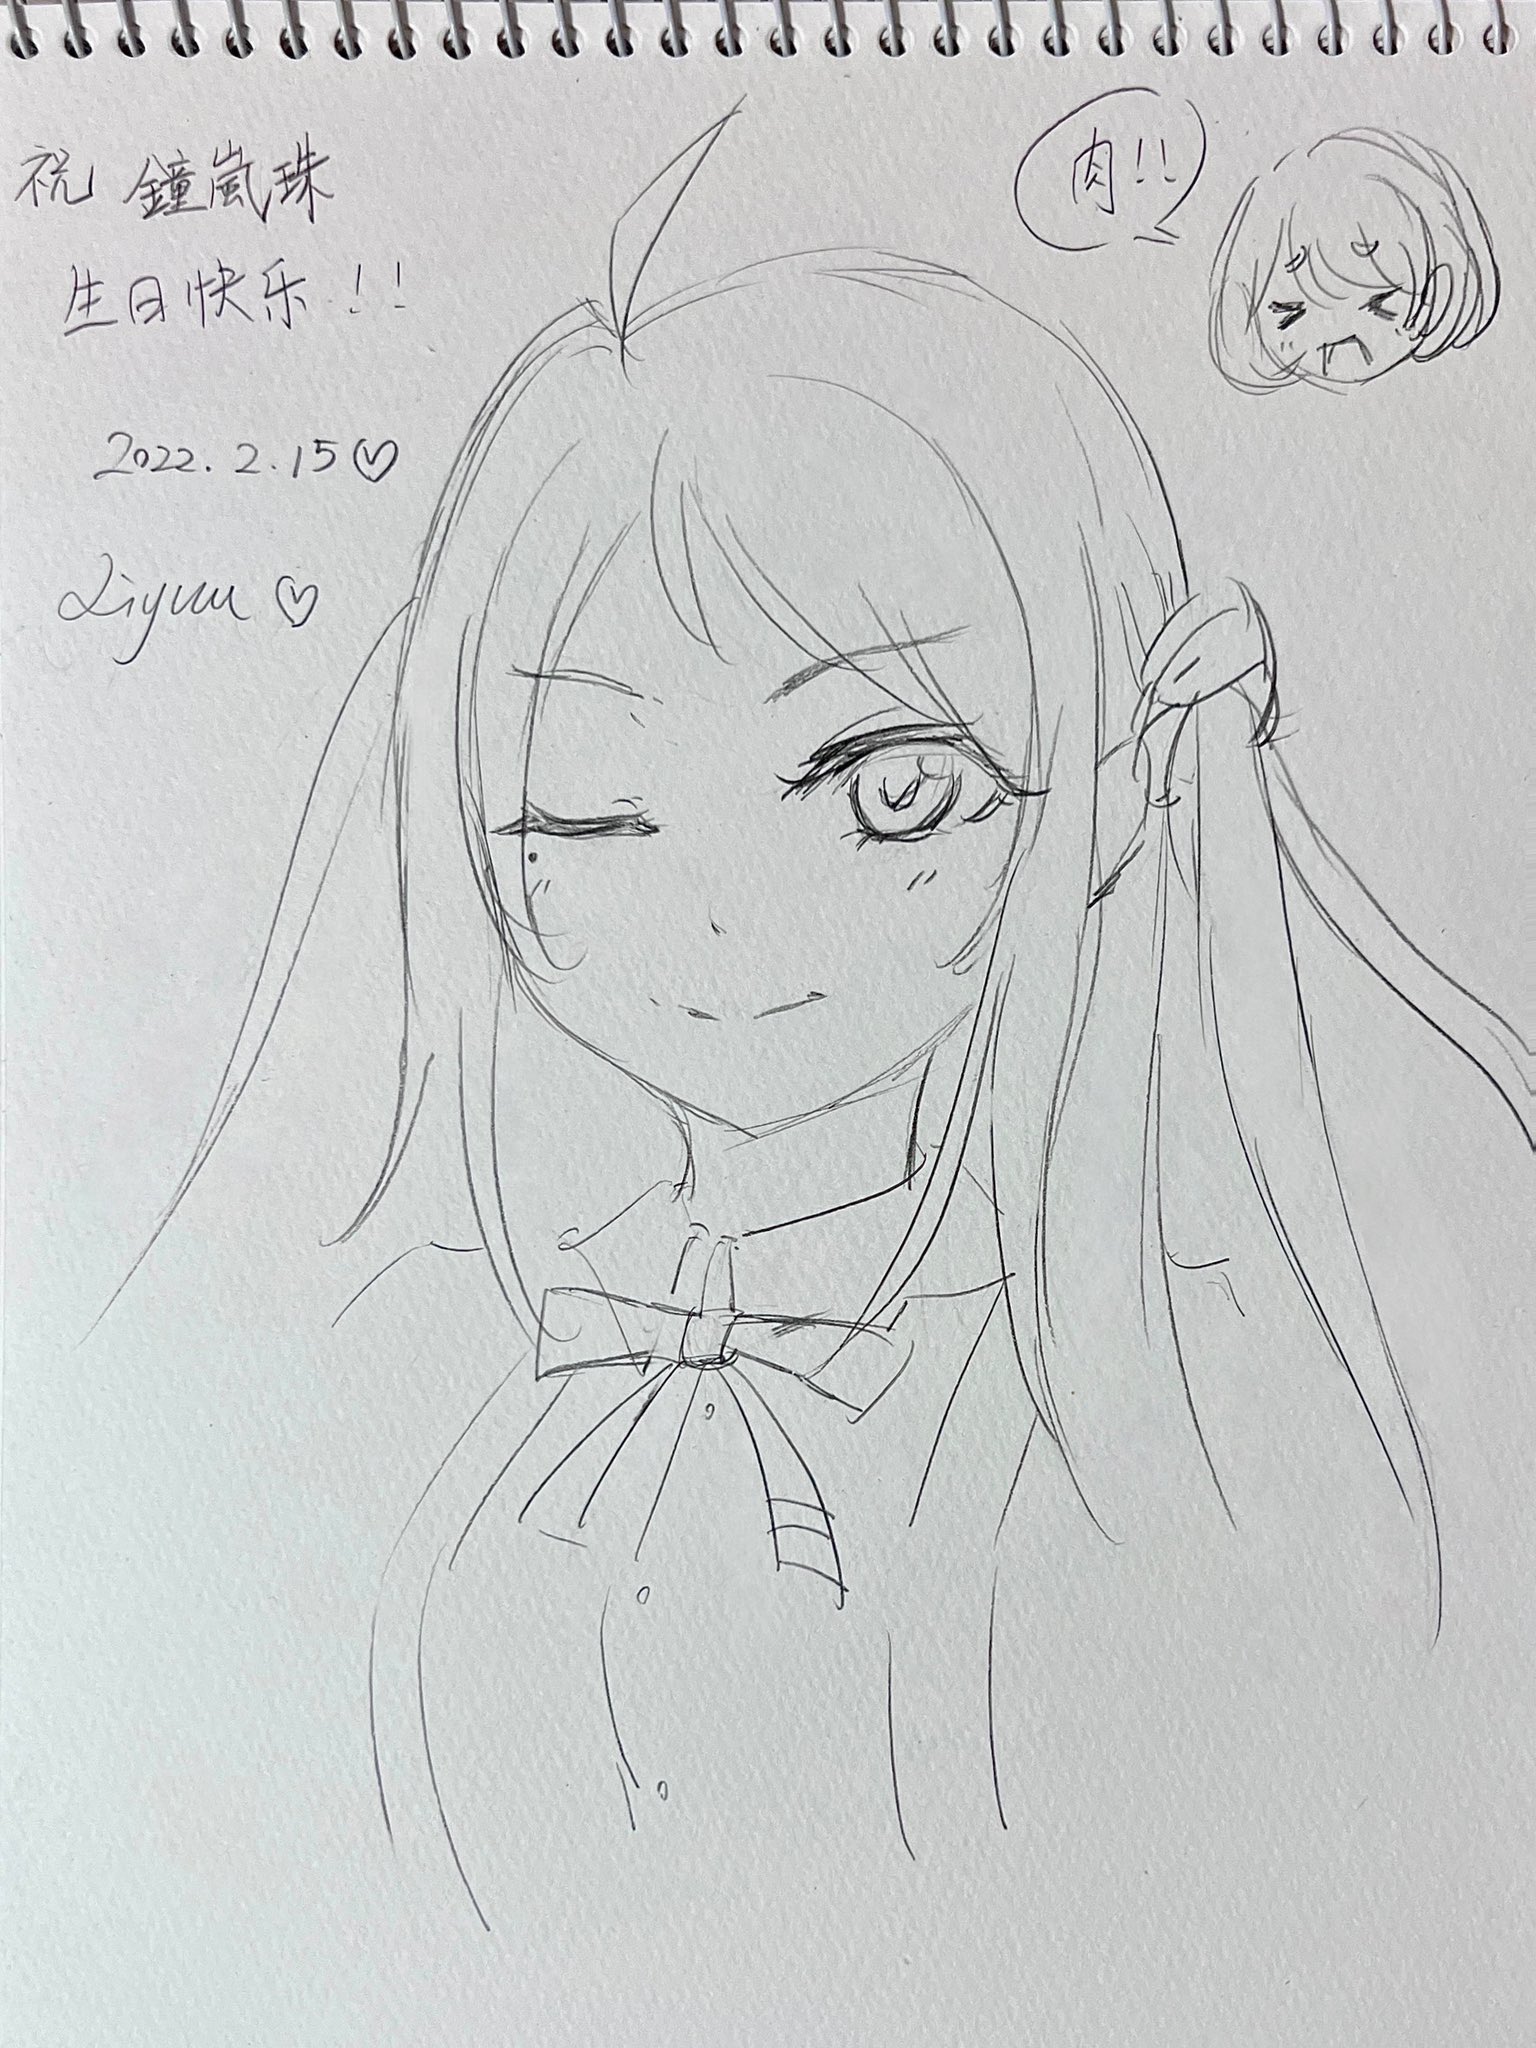 祝 鐘嵐珠
生日快乐!!
2022.2.15♡
Liyuu ♡
肉!!